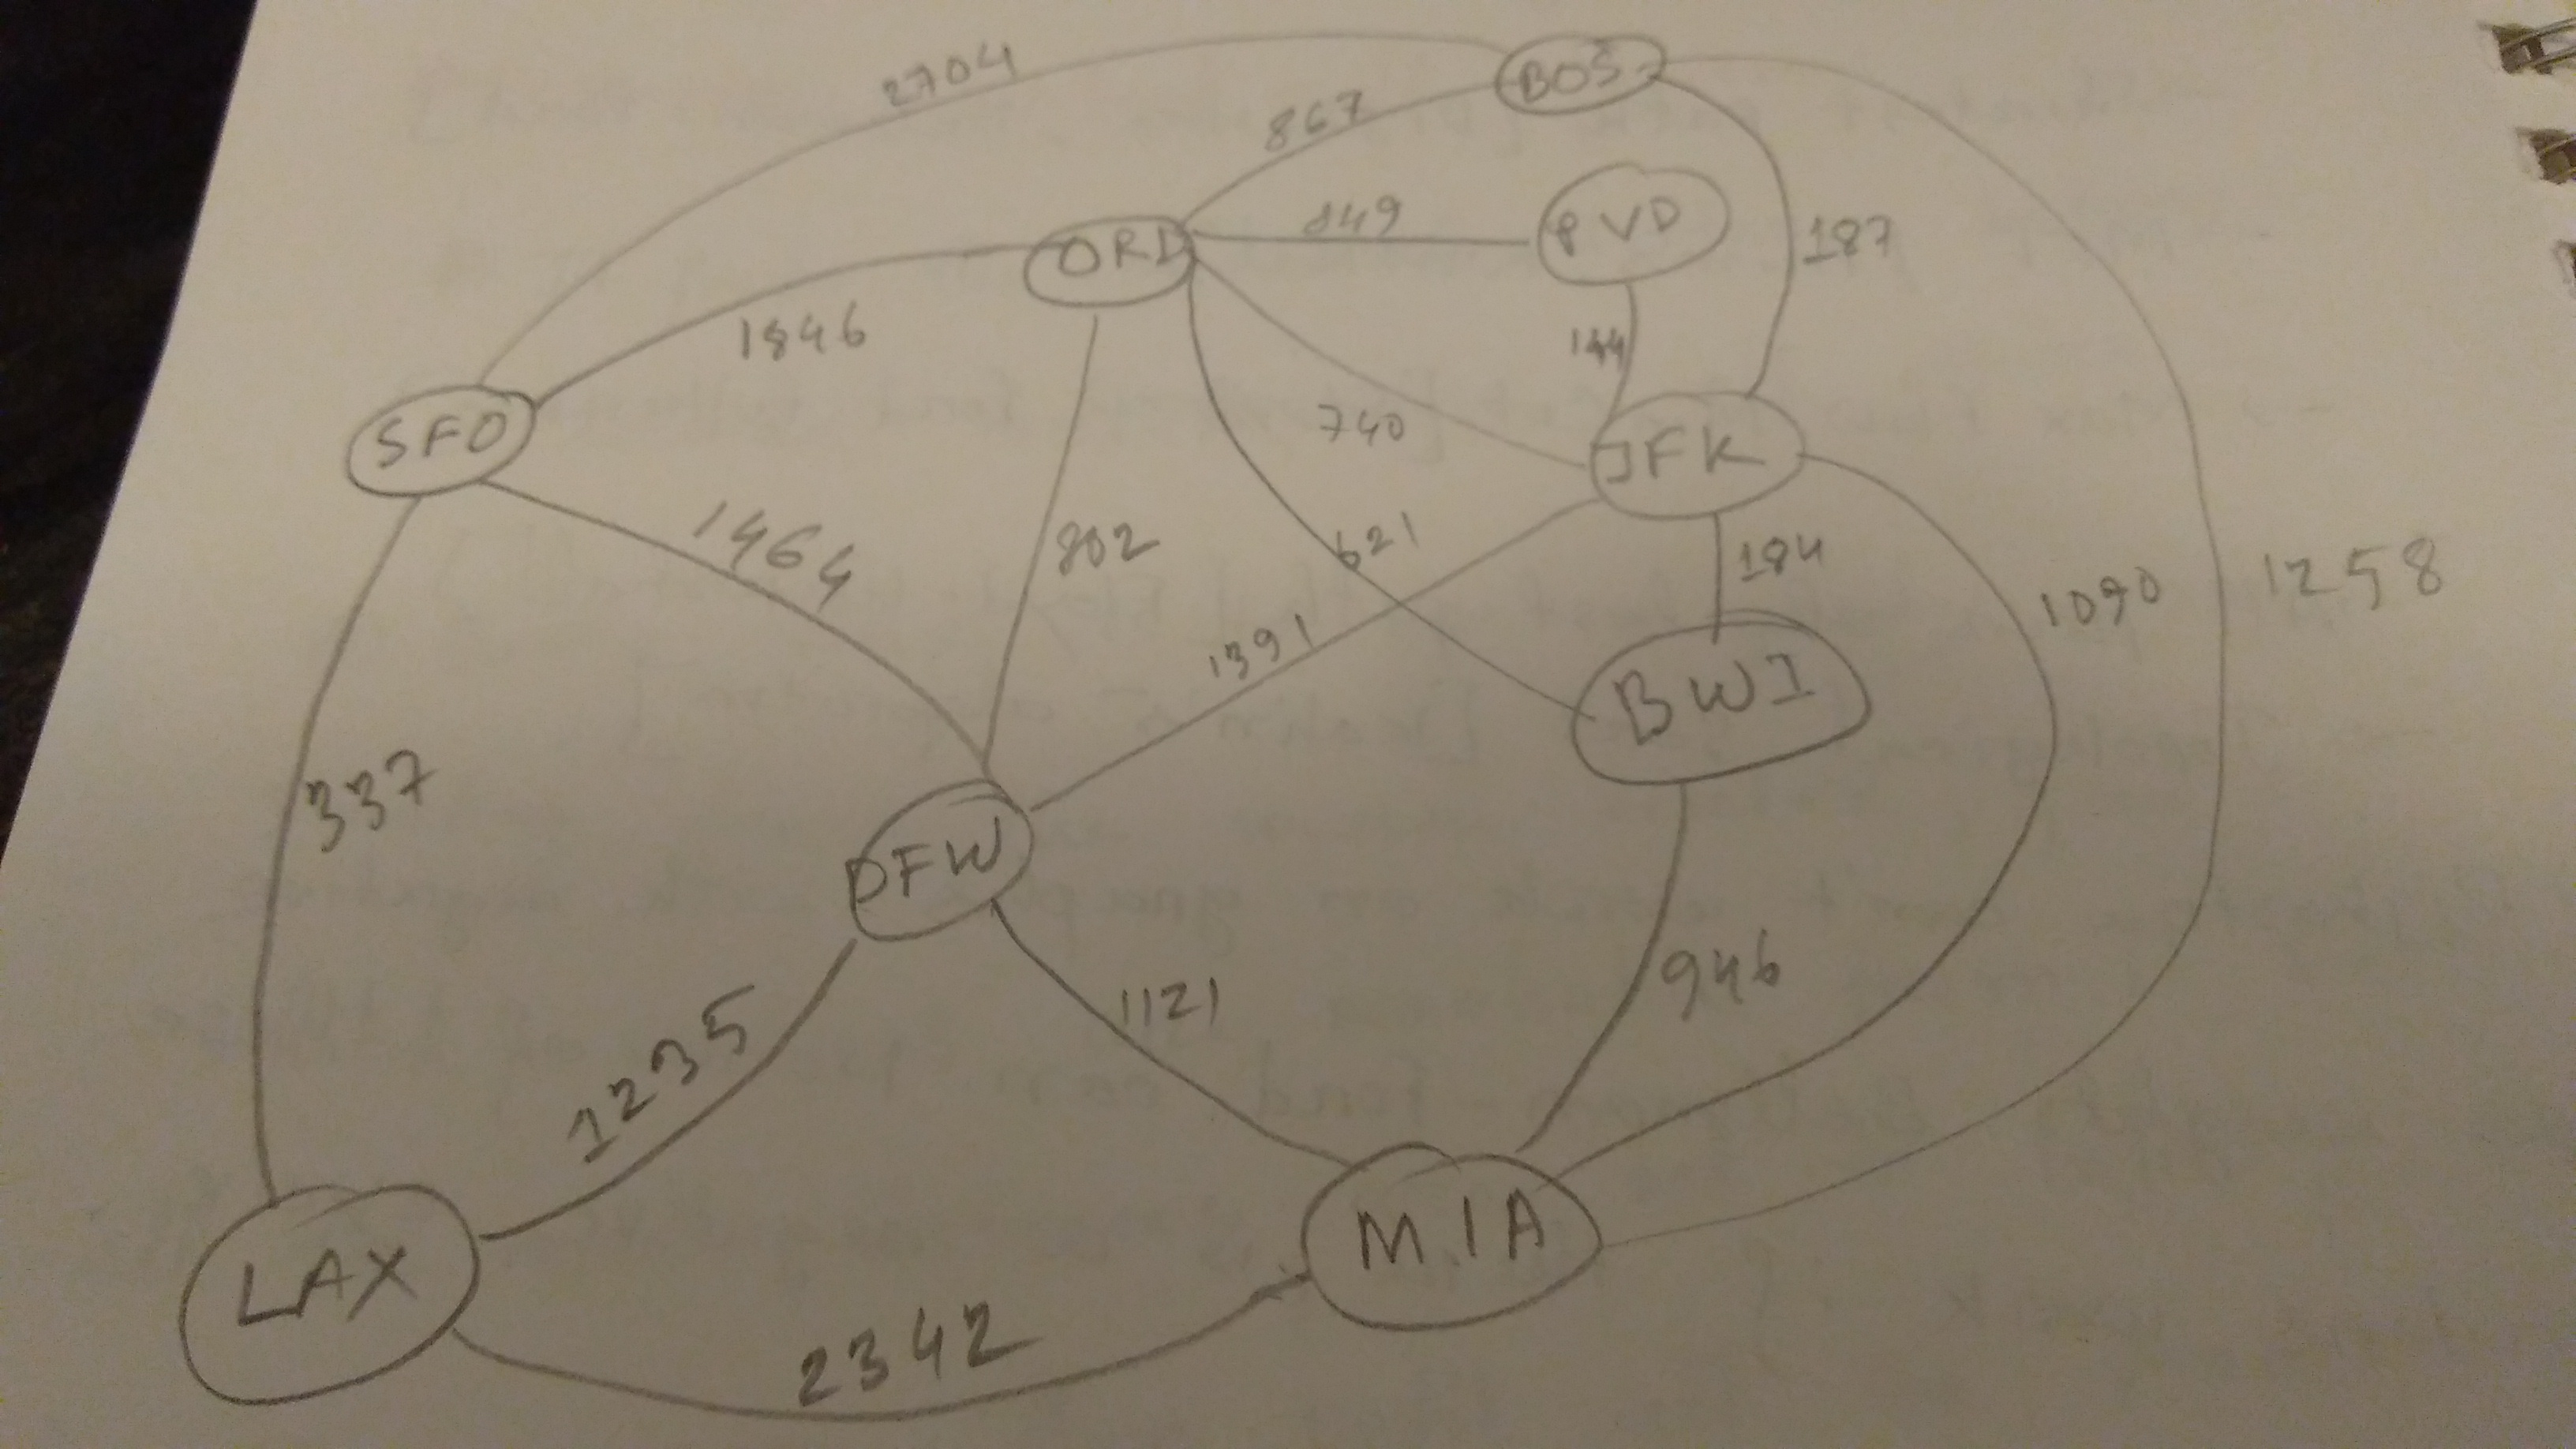 2704
BOS
867
849
PVD
187
ORD
1846
144
SFO
740
JFK
1464
802
621
184
1090
1258
1391
BWI
337
DFW
946
1121
1235
MIA
LAX
2342